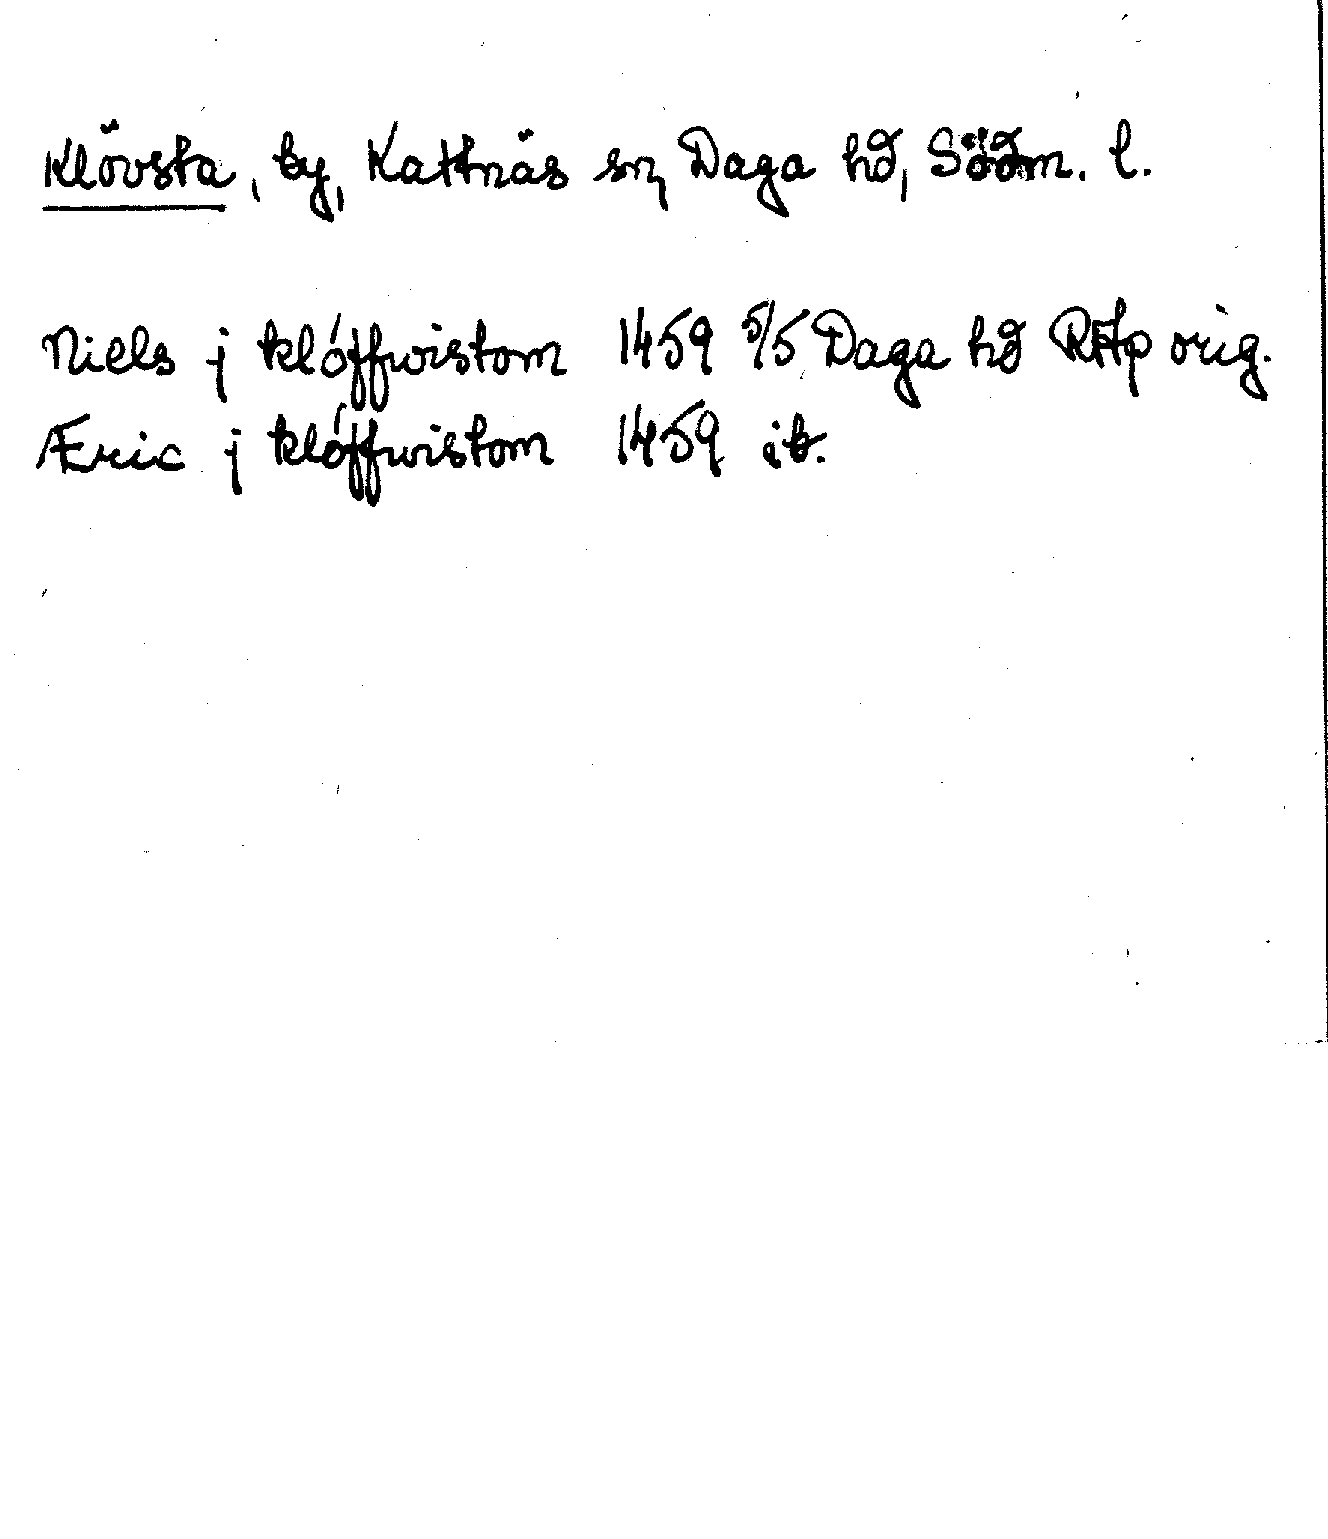 Klövsta, by, Kattnäs sn, Daga hd, Södm. l.
Niels j klóffwistom 1459 5/5 Daga hd RAp orig.
Æric j klóffwistom 1459 ib.